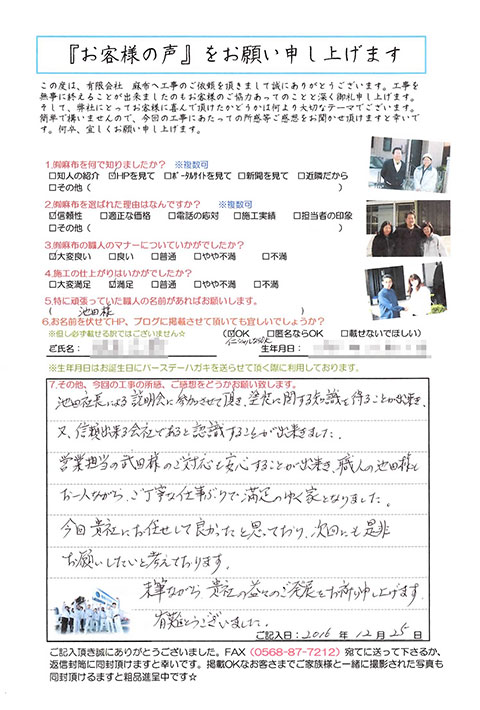 『お客様の声』をお願い申し上げます
この度は、有限会社　麻布へ工事のご依頼を頂きまして誠にありがとうございます。工事を
無事に終えることが出来ましたのもお客様のご協力あってのことと深く御礼申し上げます。
そして、弊社にとってお客様に喜んで頂けたかどうかは何より大切なテーマでございます。
簡単で構いませんので、今回の工事にあたっての所感等ご感想をお聞かせ頂けますと幸いで
す。何卒、宜しくお願い申し上げます。
1.㈲麻布を何で知りましたか？　※複数可
□知人の紹介　☑HPを見て　□ﾎﾟｰﾀﾙサイトを見て　□新聞を見て　□近隣だから
□その他（　　　　　　　　　　　　　　　　　　　　）
2.㈲麻布を選ばれた理由はなんですか？　※複数可
☑信頼性　□適正な価格　□電話の応対　□施工実績　□担当者の印象
□その他（　　　　　　　　　　　　　　　　　　　　）
3.㈲麻布の職人のマナーについていかがでしたか？
☑大変良い　□良い　□普通　□やや不満　□不満
4.施工の仕上がりはいかがでしたか？
□大変満足　☑満足　□普通　□やや不満　□不満
5.特に頑張っていた職人の名前があればお願いします。
（　池田様　）
6.お名前を伏せてHP、ブログに掲載させて頂いても宜しいでしょうか？
※但し必ず載せる訳ではございません☆　（☑OK　□匿名ならOK　□載せないでほしい）
イニシャルならOK
ご氏名：　生年月日：
※生年月日はお誕生日にバースデーハガキを送らせて頂く際に利用しております。
7.その他、今回の工事の所感、ご感想をどうかお願い致します。
池田社長による説明会に参加させて頂き、塗装に関する知識を得ることが出来、
又、信頼出来る会社であると認識することが出来ました。
営業担当の武田様のご対応も安心することが出来、職人の池田様も
お一人ながら、ご丁寧な仕事ぶりで満足のゆく家となりました。
今回貴社にお任せして良かったと思っており、次回にも是非
お願いしたいと考えております。
末筆ながら、貴社の益々のご発展をお祈り申し上げます。
有難とうございました。
ご記入日：2016 年 12 月 25 日
ご記入頂き誠にありがとうございました。FAX（0568-87-7212）宛てに送って下さるか、
返信封筒に同封頂けますと幸いです。掲載OKなお客さまでご家族様と一緒に撮影された写真も
同封頂けるますと粗品進呈中です☆